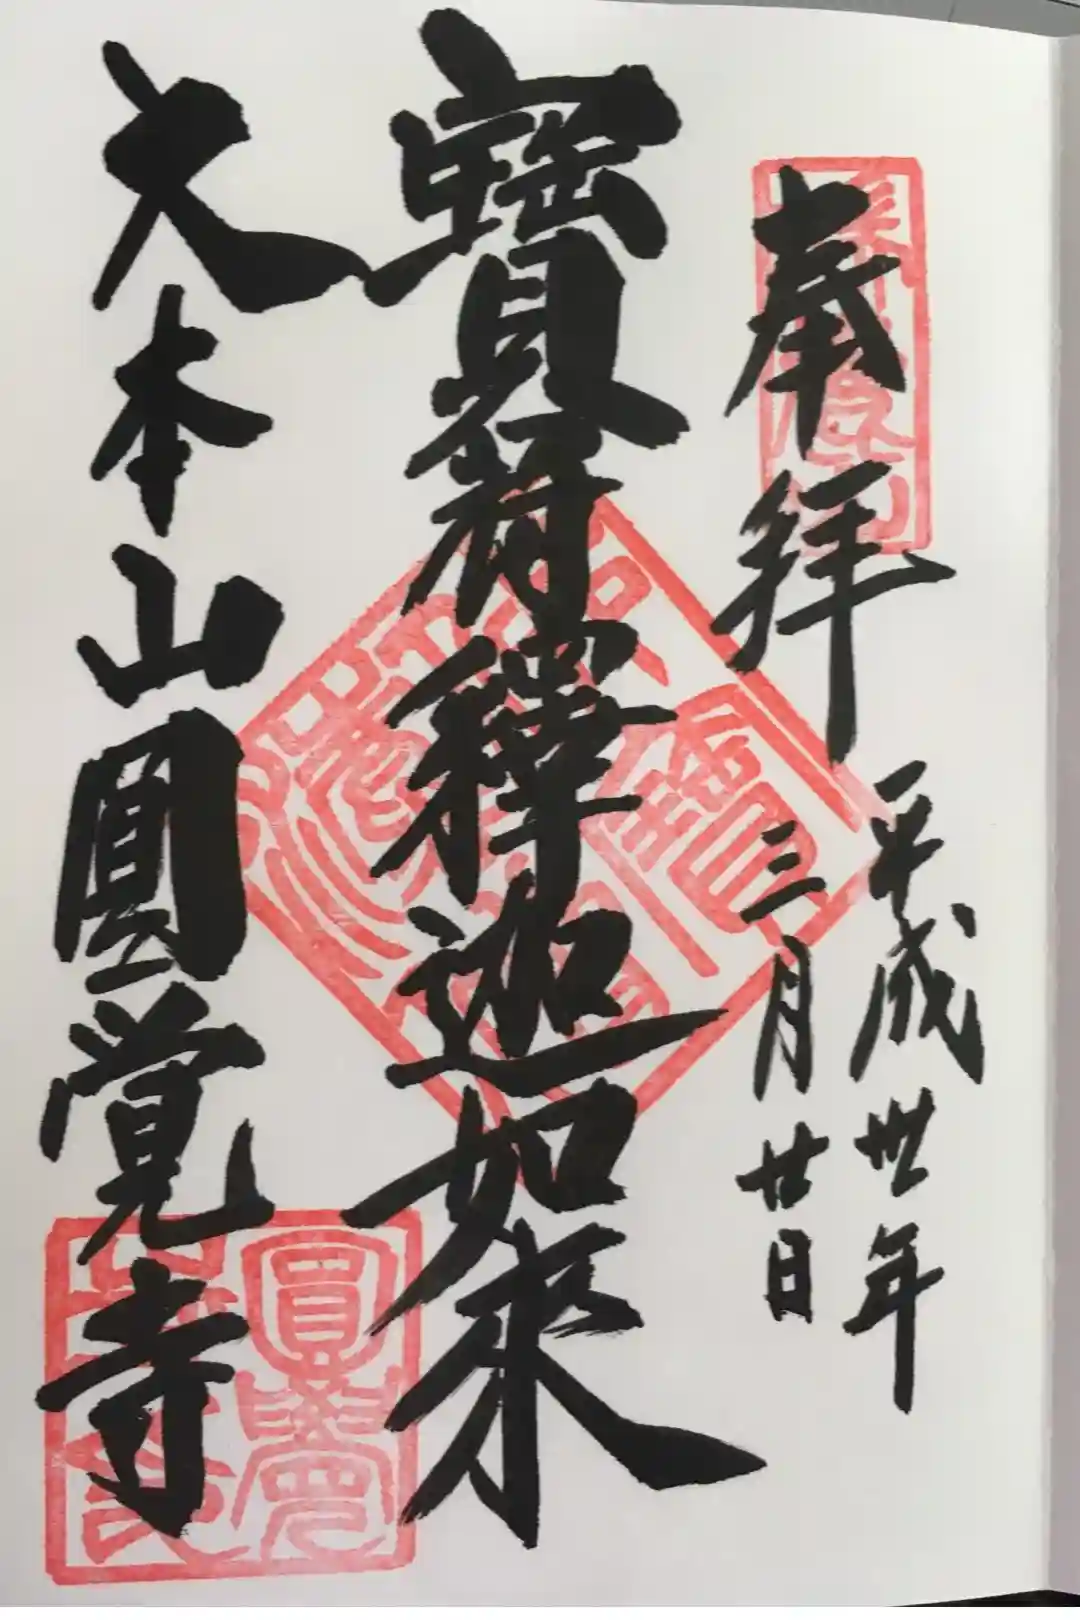 奉拝
平成丗年
三月廿日
寶冠釋迦如來
大本山圓覚寺